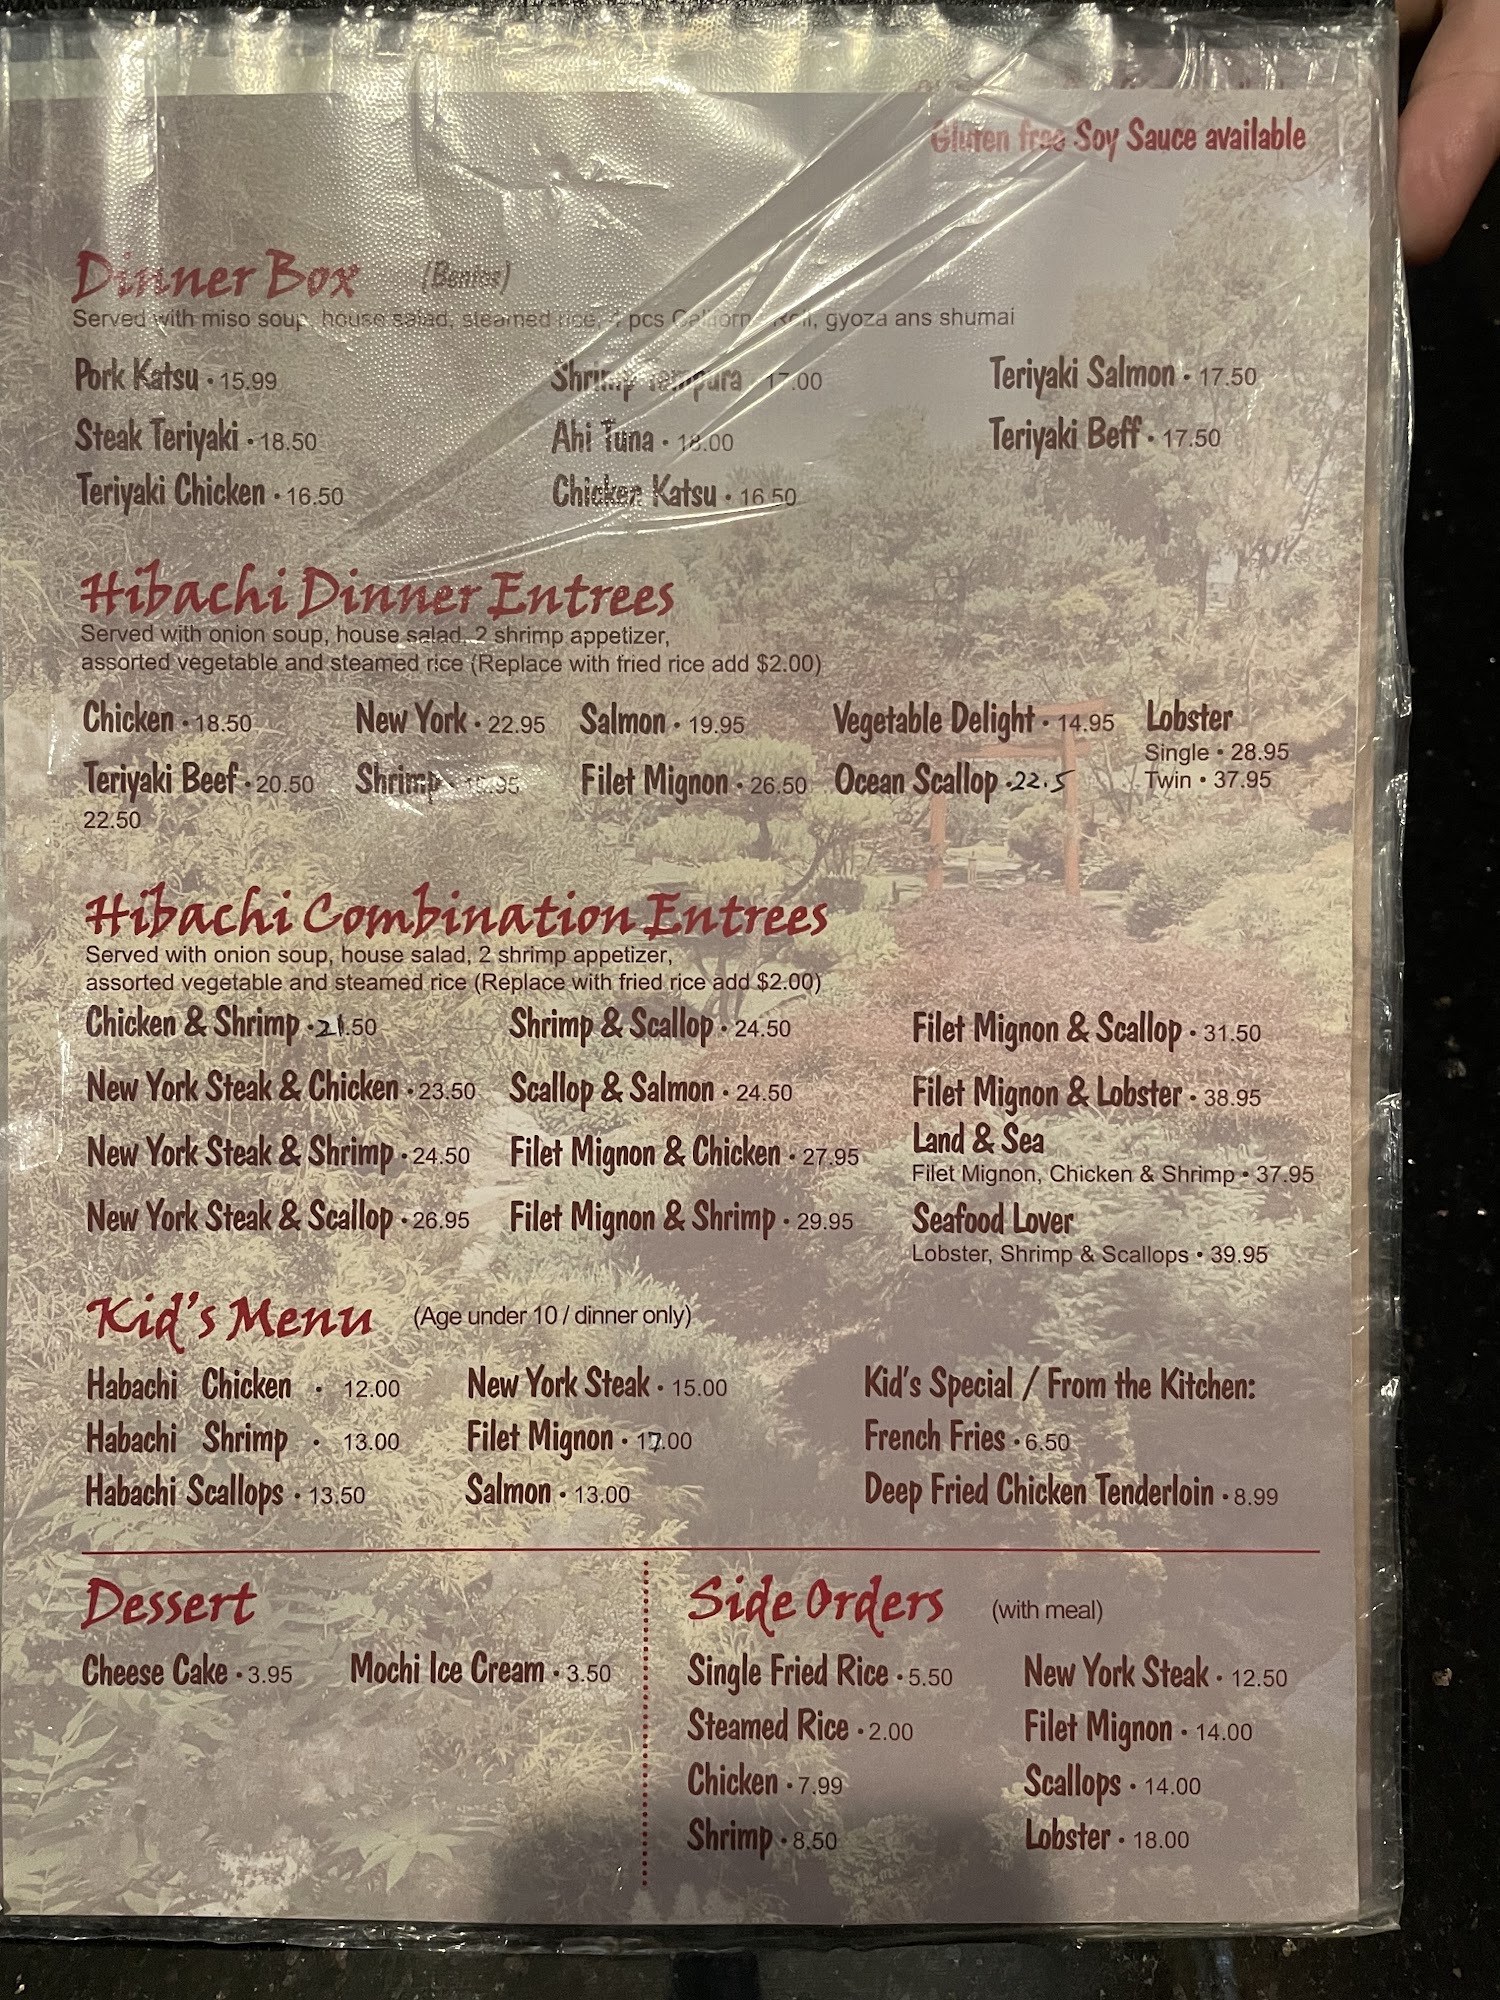 Gluten free Soy Sauce available
Dinner Box (Bentos)
Served with miso soup, house salad, steamed rice, pcs Roll, gyoza ans shumai
Pork Katsu • 15.99
Shrimp Tempura • 17.00
Teriyaki Salmon • 17.50
Steak Teriyaki • 18.50
Ahi Tuna • 18.00
Teriyaki Beff • 17.50
Teriyaki Chicken • 16.50
Chicken Katsu • 16.50
Hibachi Dinner Entrees
Served with onion soup, house salad, 2 shrimp appetizer,
assorted vegetable and steamed rice (Replace with fried rice add $2.00)
Chicken • 18.50
New York • 22.95
Salmon • 19.95
Vegetable Delight • 14.95
Lobster
Single • 28.95
Twin • 37.95
Teriyaki Beef • 20.50
Shrimp •
Filet Mignon • 26.50
Ocean Scallop • 22.5
22.50
Hibachi Combination Entrees
Served with onion soup, house salad, 2 shrimp appetizer,
assorted vegetable and steamed rice (Replace with fried rice add $2.00)
Chicken & Shrimp • 21.50
Shrimp & Scallop • 24.50
Filet Mignon & Scallop • 31.50
New York Steak & Chicken • 23.50
Scallop & Salmon • 24.50
Filet Mignon & Lobster • 38.95
New York Steak & Shrimp • 24.50
Filet Mignon & Chicken • 27.95
Land & Sea
Filet Mignon, Chicken & Shrimp • 37.95
New York Steak & Scallop • 26.95
Filet Mignon & Shrimp • 29.95
Seafood Lover
Lobster, Shrimp & Scallops • 39.95
Kid's Menu (Age under 10 / dinner only)
Habachi Chicken • 12.00
New York Steak • 15.00
Kid's Special / From the Kitchen:
Habachi Shrimp • 13.00
Filet Mignon • 17.00
French Fries • 6.50
Habachi Scallops • 13.50
Salmon • 13.00
Deep Fried Chicken Tenderloin • 8.99
Dessert
Cheese Cake • 3.95
Mochi Ice Cream • 3.50
Side Orders (with meal)
Single Fried Rice • 5.50
New York Steak • 12.50
Steamed Rice • 2.00
Filet Mignon • 14.00
Chicken • 7.99
Scallops • 14.00
Shrimp • 8.50
Lobster • 18.00